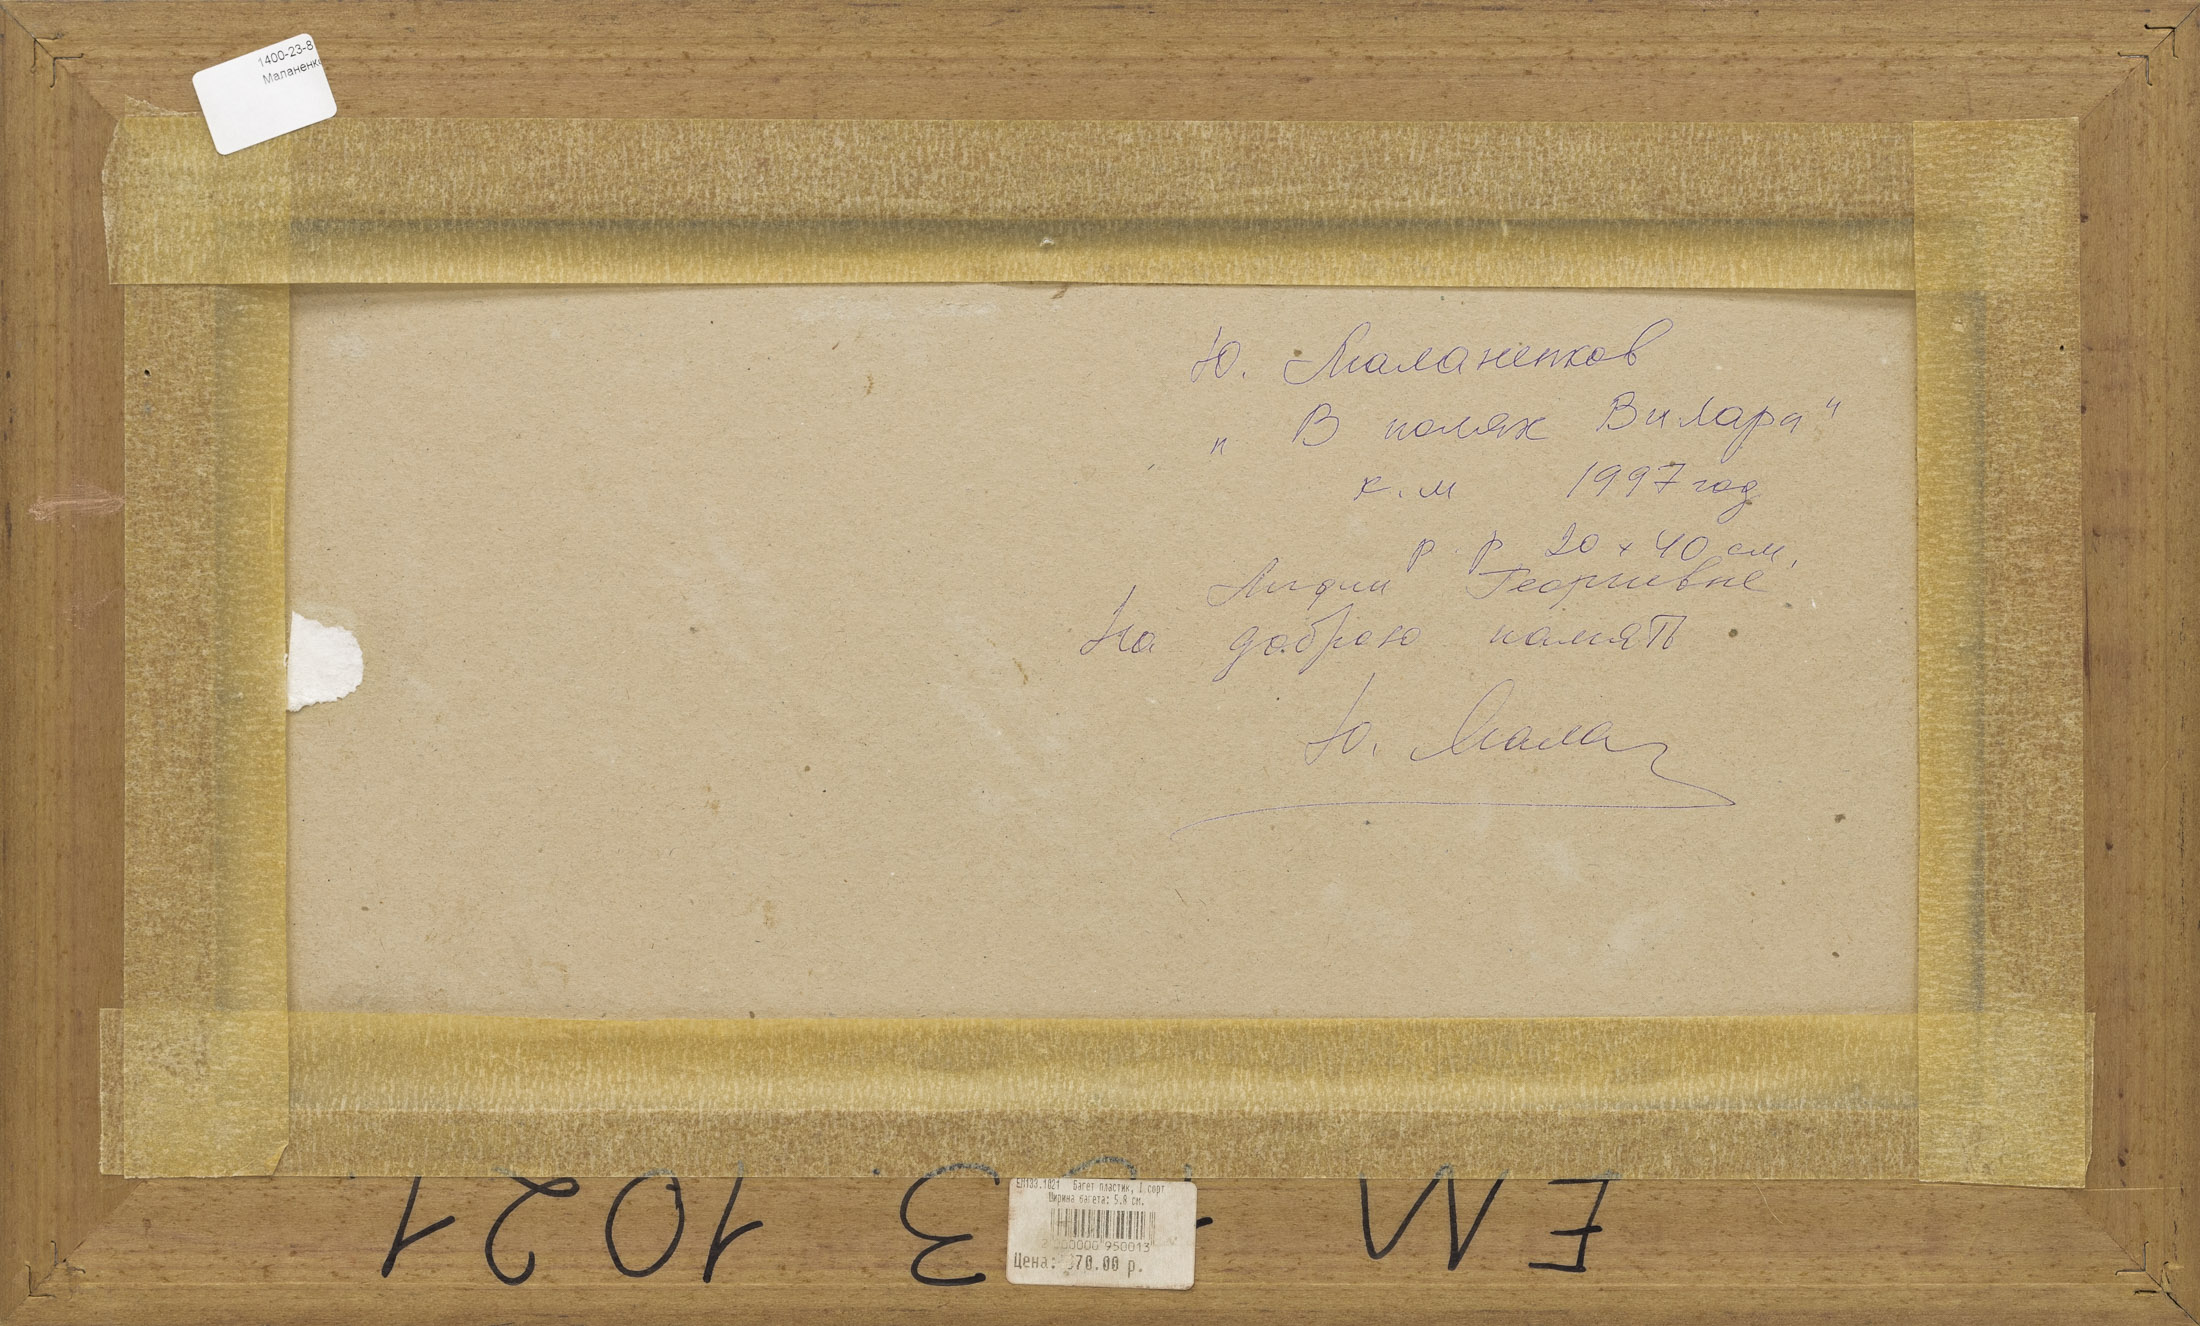 1400-23-8
Маланенк
Ю. Маланенков
„ В полях Вилара"
к.м 1997 год
р-р 20 x 40 см.
Лидии Георгиевне
На доброю память
Ю. Мала
ЕМ 133.1021
ЕМ133.1021 Багет пластик, 1 сорт
Ширина багета: 5,8 см.
950013
Цена: 370.00 р.